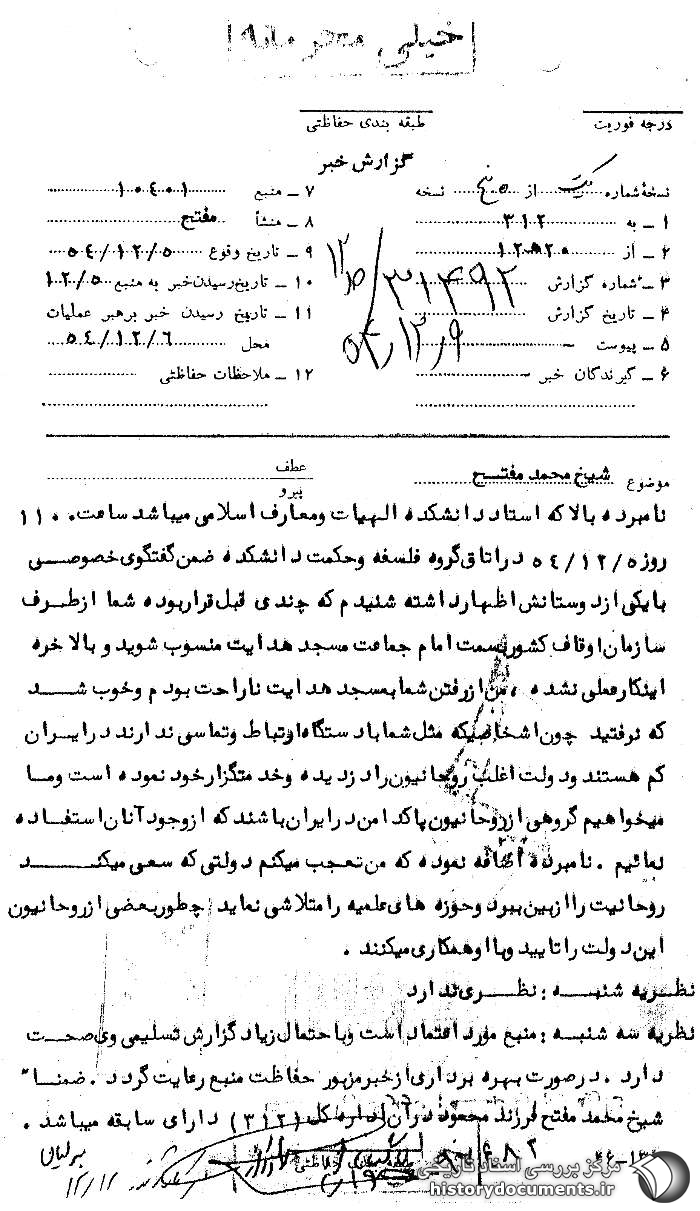 خیلی محرمانه
درجه فوریت
طبقه بندی حفاظتی
گزارش خبر
نسخهٔ شماره یک از ۵ پنج نسخه
۱ ـ به ۳۱۲
۲ ـ از ۱۲ه۲۰
۳ ـ شماره گزارش ۳۱۴۹۲/۱۲ه۲۰
۴ ـ تاریخ گزارش ۵۴/۱۲/۹
۵ ـ پیوست ـ
۶ ـ گیرندگان خبر ـ
۷ ـ منبع ۱۰۴۰۱
۸ ـ منشأ مفتح
۹ ـ تاریخ وقوع ۵۴/۱۲/۵
۱۰ ـ تاریخ رسیدن خبر به منبع ۱۲/۵
۱۱ ـ تاریخ رسیدن خبر برهبر عملیات
محل ۵۴/۱۲/۶
۱۲ ـ ملاحظات حفاظتی
موضوع شیخ محمد مفتح
عطف
پیرو
نامبرده بالا که استاد دانشکده الهیات و معارف اسلامی میباشد ساعت ۱۱۰۰
روز ۵۴/۱۲/۵ در اتاق گروه فلسفه و حکمت دانشکده ضمن گفتگوی خصوصی
با یکی از دوستانش اظهار داشته شنیدم که چندی قبل قرار بوده شما از طرف
سازمان اوقاف کشور بسمت امام جماعت مسجد هدایت منسوب شوید و بالاخره
اینکار عملی نشده ، من از رفتن شما بمسجد هدایت ناراحت بودم و خوب شد
که نرفتید چون اشخاصیکه مثل شما با دستگاه ارتباط و تماسی ندارند در ایران
کم هستند و دولت اغلب روحانیون را دزدیده و خدمتگزار خود نموده است و ما
میخواهیم گروهی از روحانیون پاکدامن در ایران باشند که از وجود آنان استفاده
نمائیم . نامبرده اضافه نموده که من تعجب میکنم دولتی که سعی میکند
روحانیت را از بین ببرد و حوزه های علمیه را متلاشی نماید چطور بعضی از روحانیون
این دولت را تایید و با او همکاری میکنند .
نظریه شنبه : نظری ندارد
نظریه سه شنبه : منبع مورد اعتماد است و با احتمال زیاد گزارش تسلیمی وی صحت
دارد . در صورت بهره برداری از خبر مزبور حفاظت منبع رعایت گردد . ضمنا"
شیخ محمد مفتح فرزند محمود در آن اداره کل (۳۱۲) دارای سابقه میباشد .
طبقه بندی حفاظتی
۱۲/۱۲
مرکز بررسی اسناد تاریخی
historydocuments.ir